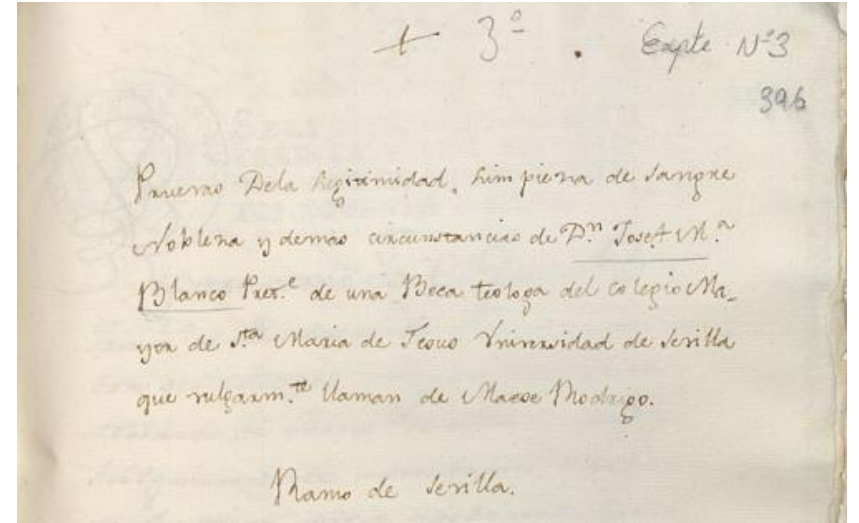 + 3º . Expte Nº3
396
Pruevas Dela Legitimidad, Limpieza de Sangre
Nobleza y demas circunstancias de D.n Josef M.a
Blanco Pret.e de una Beca teologa del colegio Ma-
yor de S.ta Maria de Jesus Vniversidad de Sevilla
que vulgarm.te llaman de Maese Rodrigo.
Ramo de Sevilla.